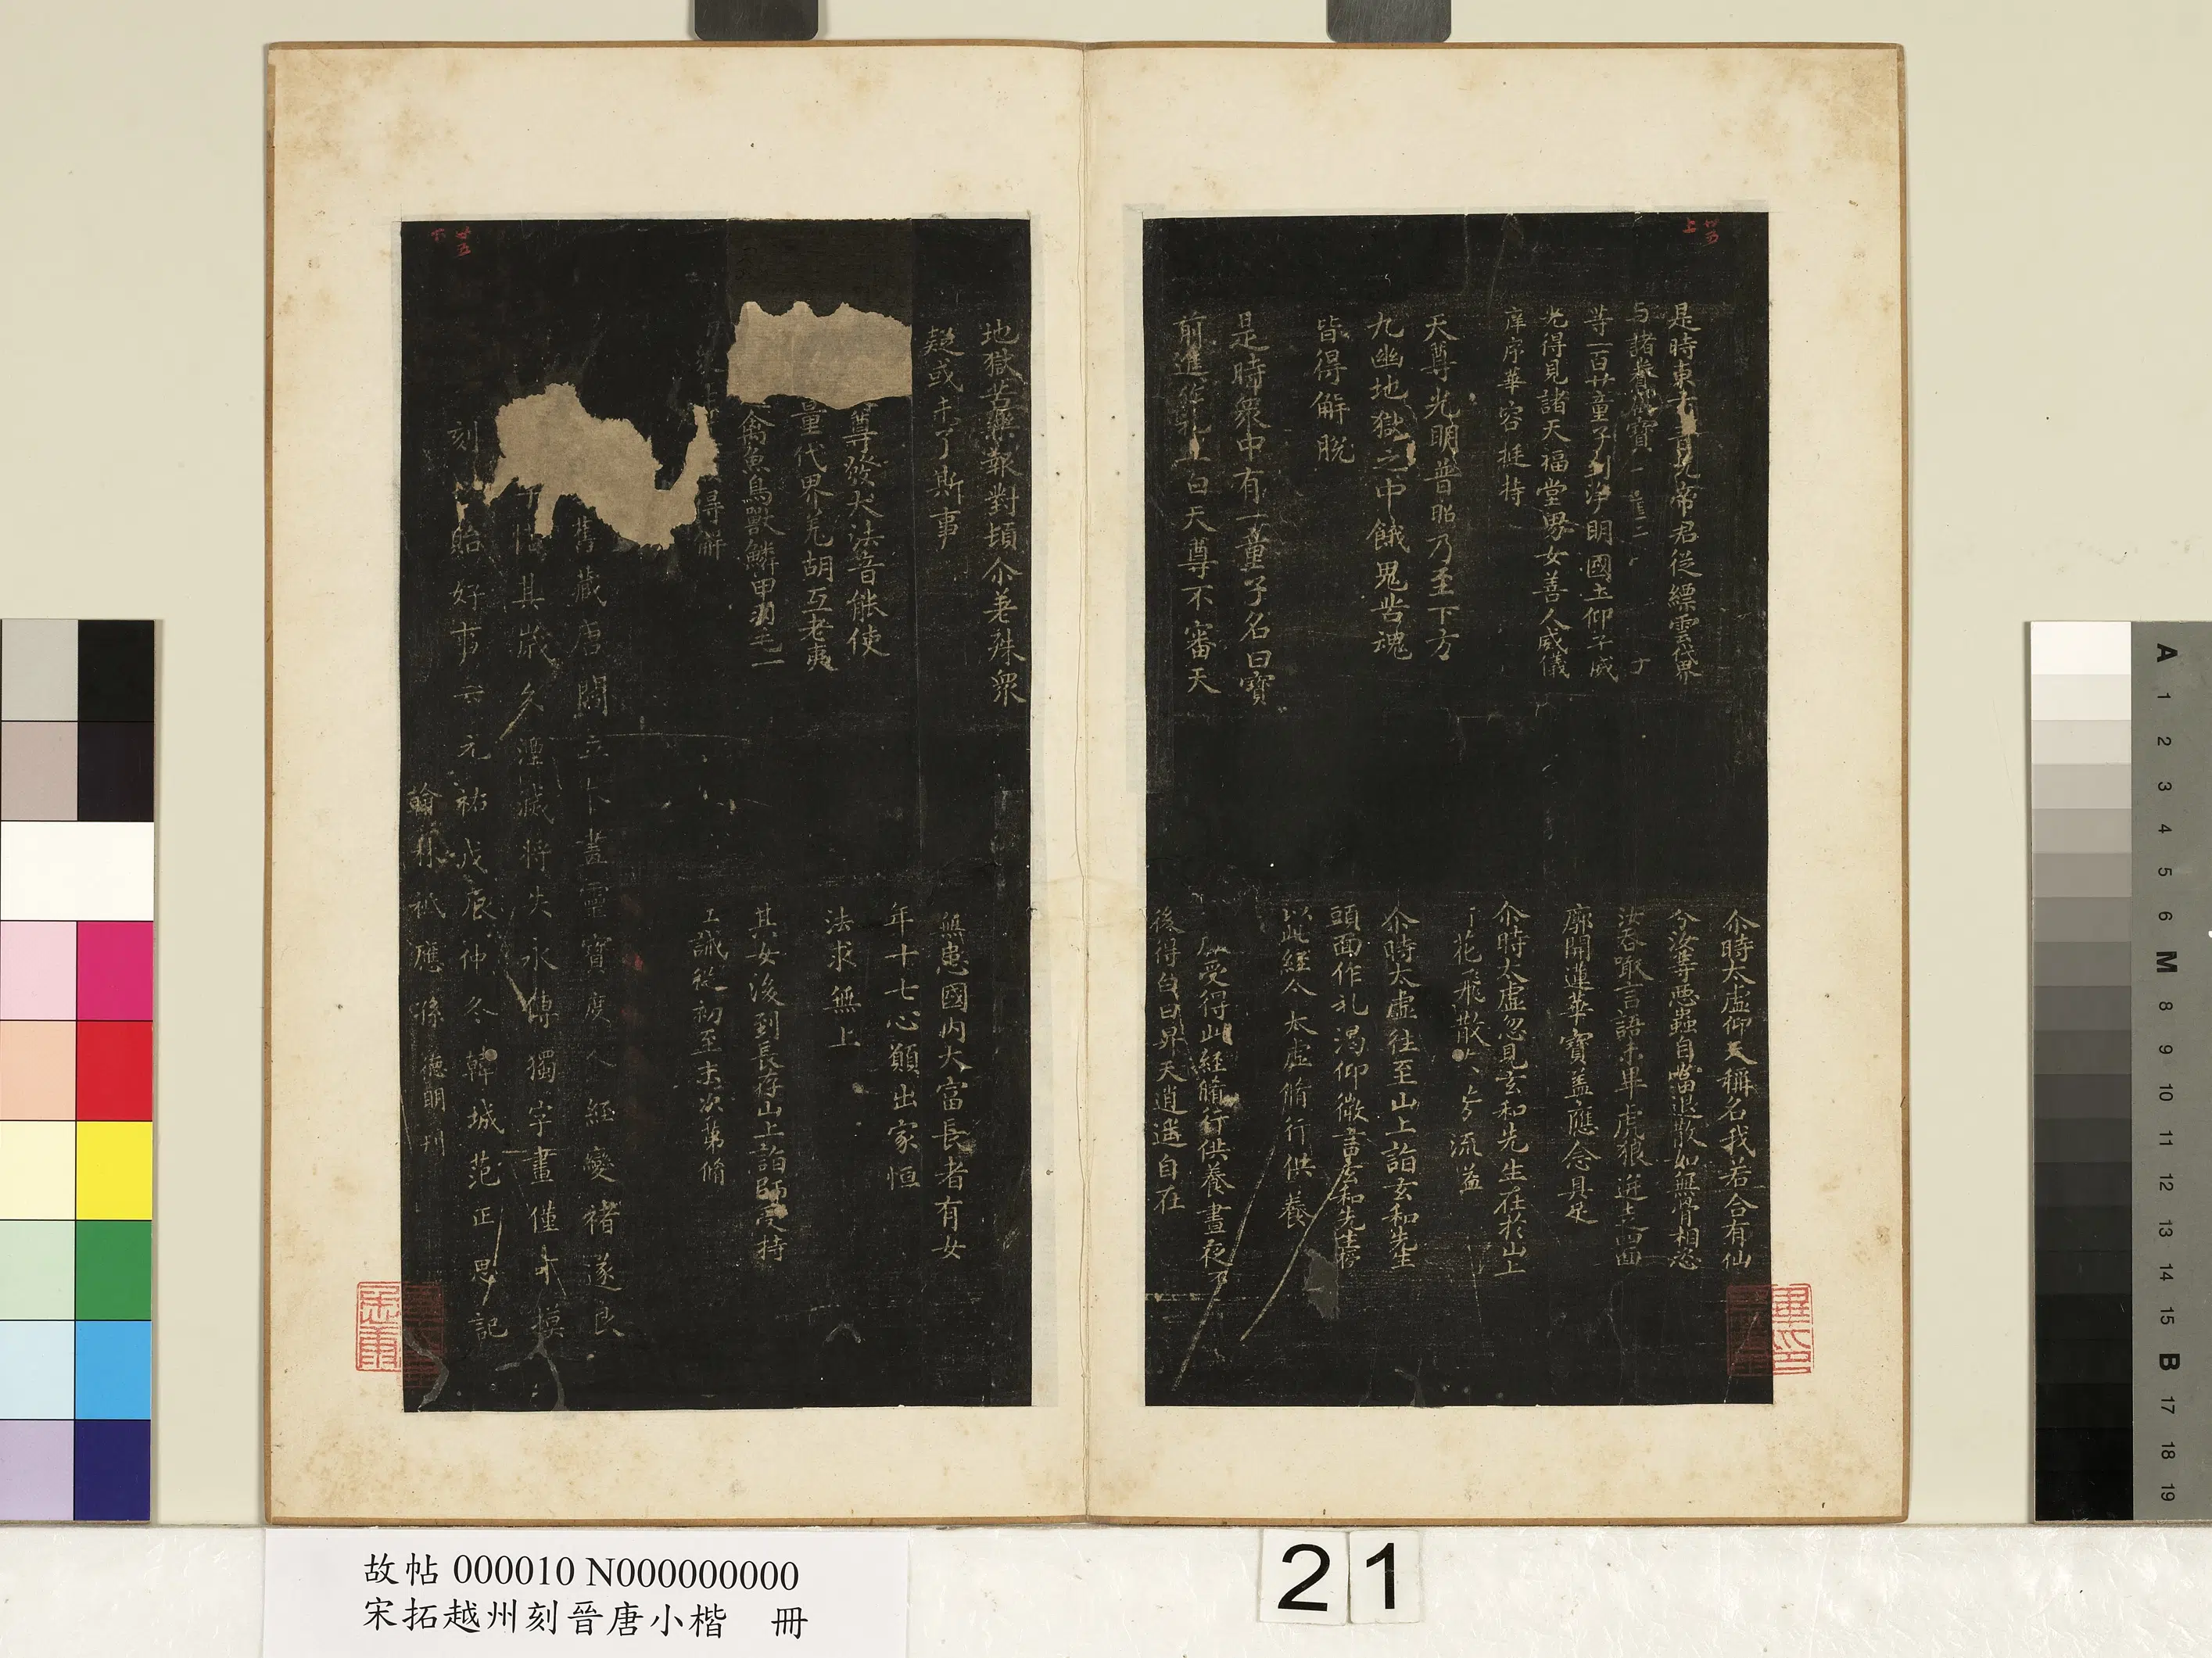 是時東方青元帝君從縹雲岱界
与諸
等一百廿童子到浄明國土仰子威
光得見諸天福堂男女善人威儀
庠序華容挺持
天尊光明普照乃至下方
九幽地獄之中餓鬼苦魂
皆得解脫
是時衆中有一童子名曰寶
前進作礼上白天尊不審天
尒時太虛仰天稱名我若合有仙
分汝等惡蟲自當退散如無骨相恣
汝吞噉言語未畢虎狼迸走四面
廓開蓮華寶盖應念具足
尒時太虛忽見玄和先生在於山上
花飛散 流溢
尒時太虛往至山上詣玄和先生
頭面作礼渴仰徵書玄和先生
以此経令太虛脩行供養
受得此経脩行供養晝夜不
後得白日昇天逍遥自在
地獄苦藥報對頓尒差殊衆
疑或未了斯事
尊發大法音能使
量代界羌胡互老夷
禽魚鳥獸鱗甲羽毛一
得解
無患國内大富長者有女
年十七心願出家恒
法求無上
其女後到長存山上詣師受持
誠從初至末次第脩
舊藏唐閻立本畫靈寶度人經變褚遂良
其歲久湮滅將失永傳獨字畫僅可摸
刻 貽好事云元祐戊辰仲冬韓城范正思記
翰林祗應 德明刊
廿五
上
廿五
下
故帖 000010 N000000000
宋拓越州刻晉唐小楷 冊
21
A 1 2 3 4 5 6 M 8 9 10 11 12 13 14 15 B 17 18 19